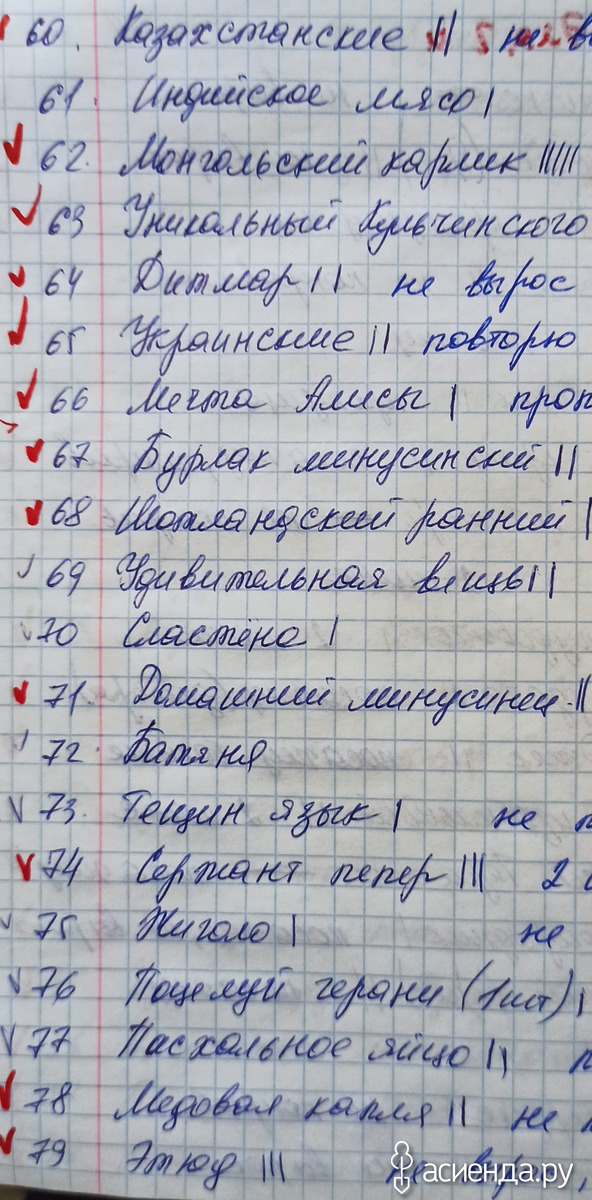 60. Казахстанские || не
61. Индийское мясо |
62. Монгольский карлик |||||
63 Уникальный Кульчинского
64 Дитмар || не вырос
65 Украинские || повторю
66 Мечта Алисы |
67 Бурлак минусинский ||
68 Шотландский ранний |
69 Удивительная вещь ||
70 Сластёна |
71. Домашний минусинец ||
72 Батяня
73. Тещин язык | не
74 Сержант пепер ||| 2
75 Жиголо | не
76 Поцелуй герани (1шт) |
77 Пасхальное яйцо ||
78 Медовая капля || не
79 Этюд |||
асиенда.ру